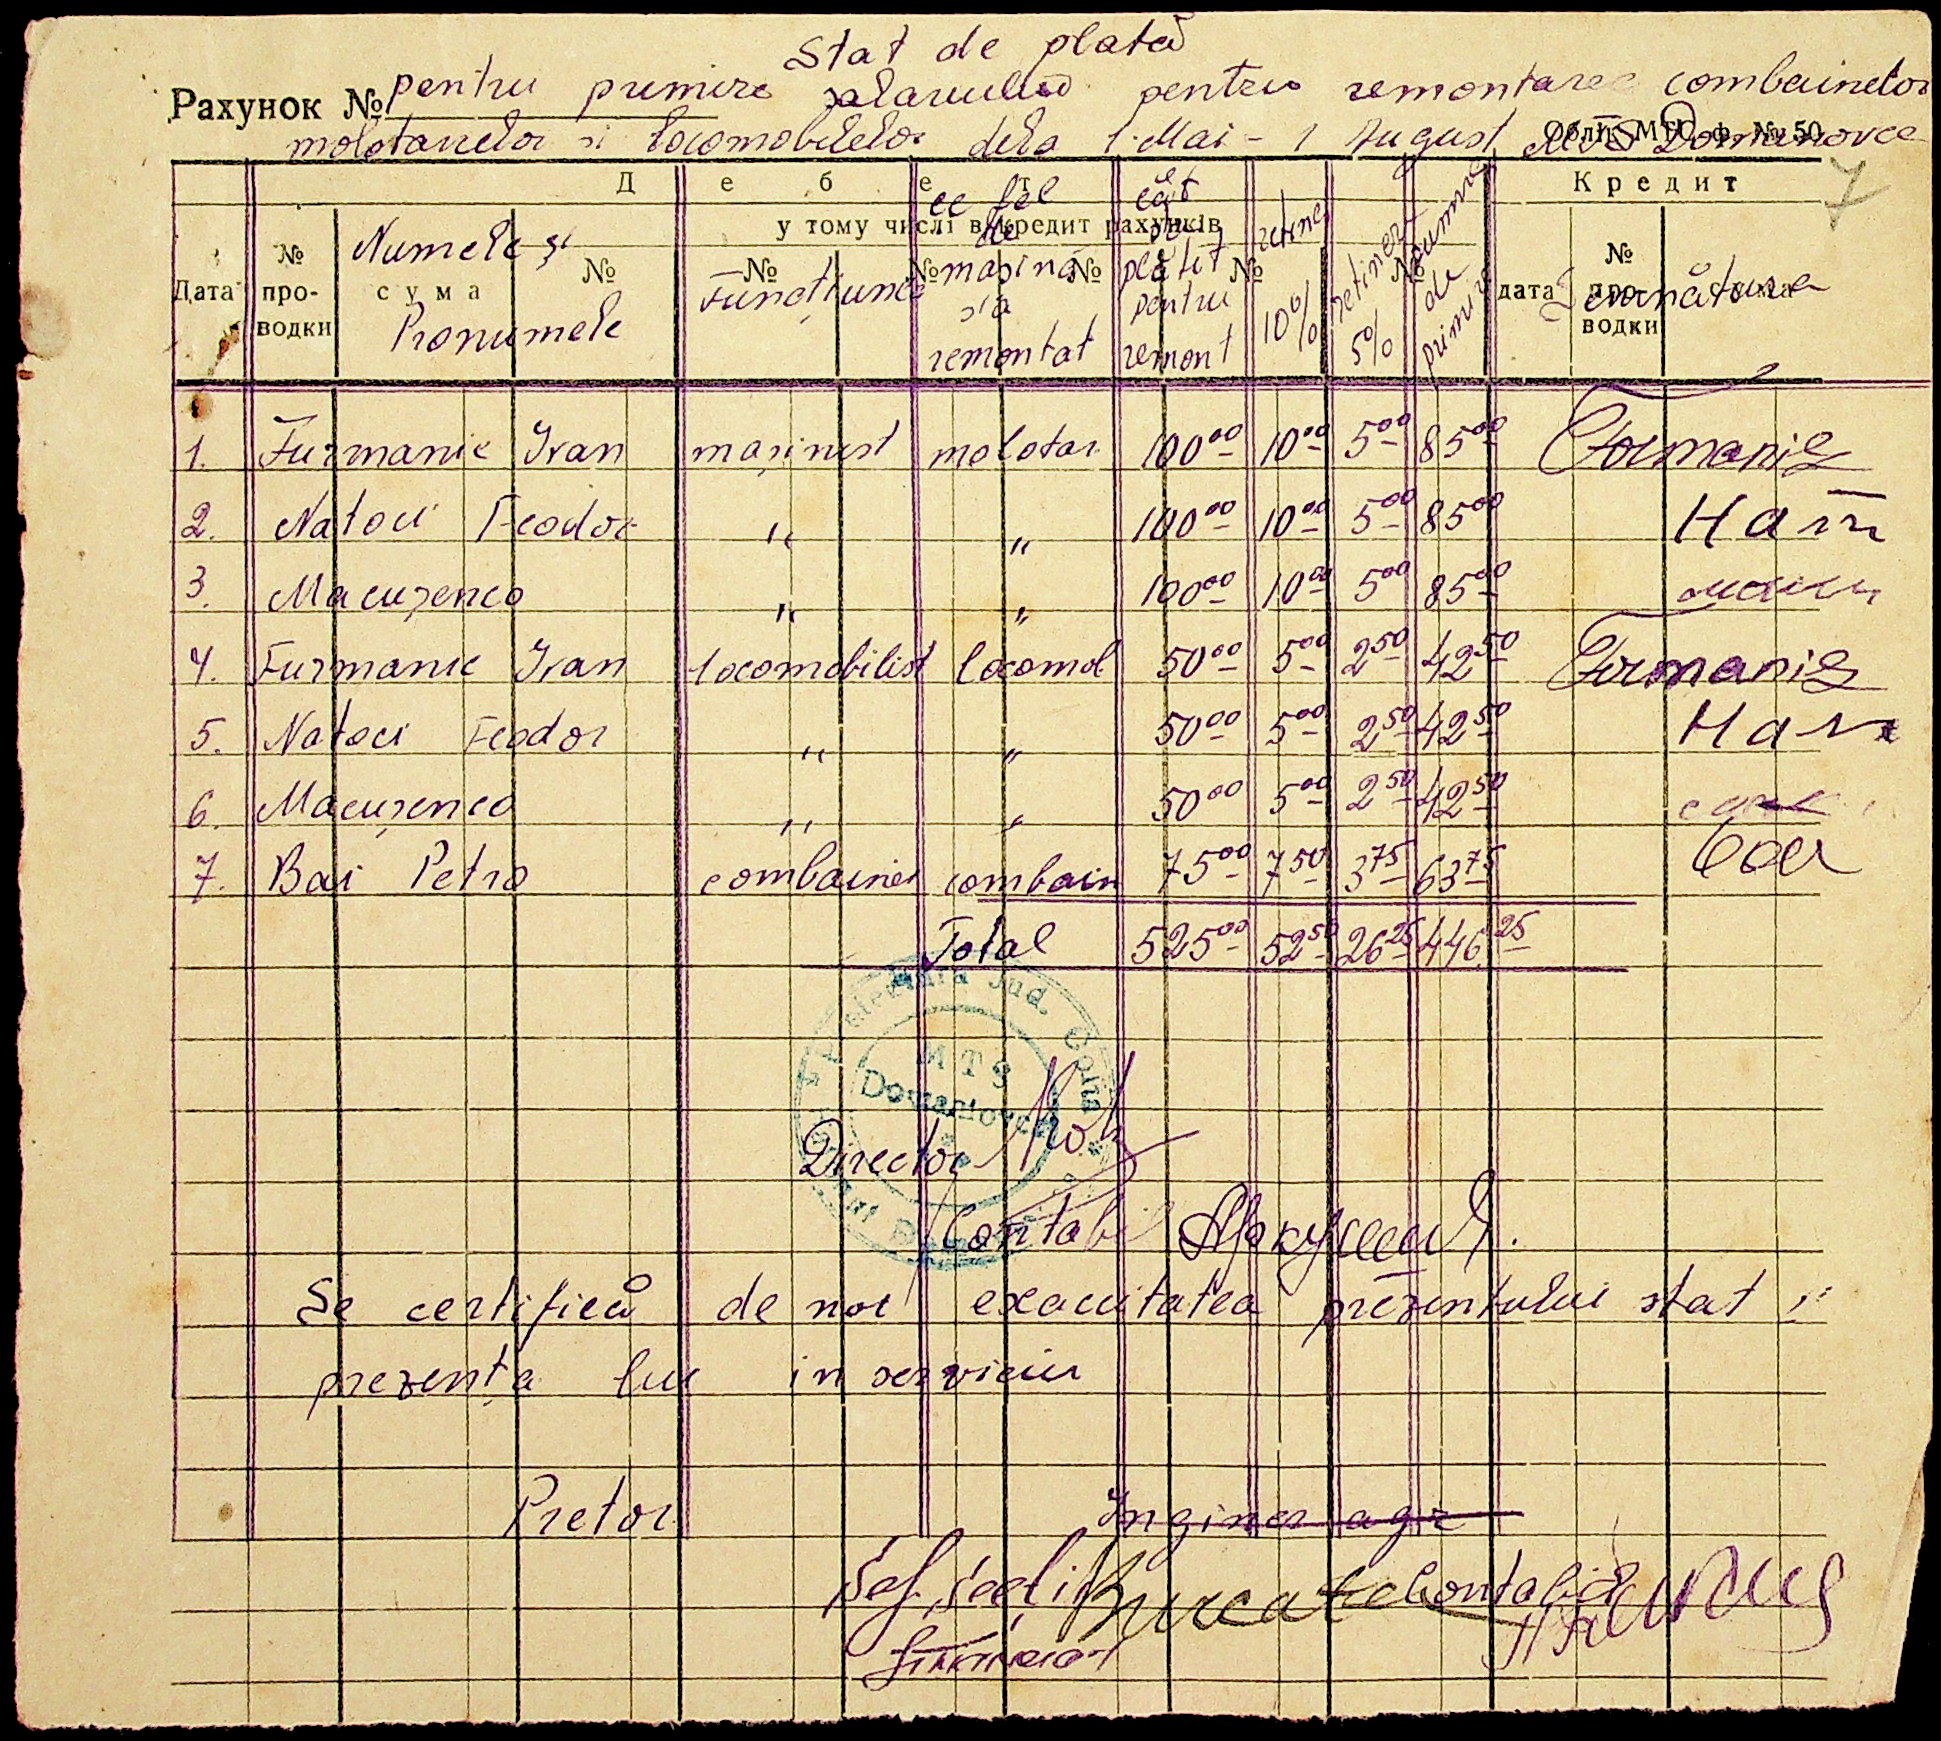 Stat de plată
Рахунок № pentru primire salariului pentru remontarea combainelor
Облік МТС ф. № 50
molotarelor si locomobilelor dela 1 Mai - 1 August MTS Domanovca
7
Д е б е т Кредит
у тому числі в кредит рахунків
Дата № проводки сума № № № № № № дата № проводки сума
Numele și Pronumele Funcțiunea ce fel de mașina s'a remontat cât s'a plătit pentru remont retineri 10% retineri 5% suma de primire Semnătura
1. Furmanic Ivan mașinist molotar 100 00 10 00 5 00 85 00 Фурманіс
2. Natoci Feodor " " 100 00 10 00 5 00 85 00 Нат
3. Macuzenco " " 100 00 10 00 5 00 85 00
4. Furmanic Ivan locomobilist locomob 50 00 5 00 2 50 42 50 Фурманіс
5. Natoci Feodor " " 50 00 5 00 2 50 42 50 Нат
6. Macuzenco " " 50 00 5 00 2 50 42 50
7. Bai Petro combainer combain 75 00 7 50 3 75 63 75 Бай
Total 525 00 52 50 26 25 446 25
Jud. Golta
MTS
Domaniovca
Director
Contabil
Se certifică de noi exacitatea prezentului stat și
prezența lui in serviciu
Pretor Inginer agr
Șef Secției Contabil
financiar